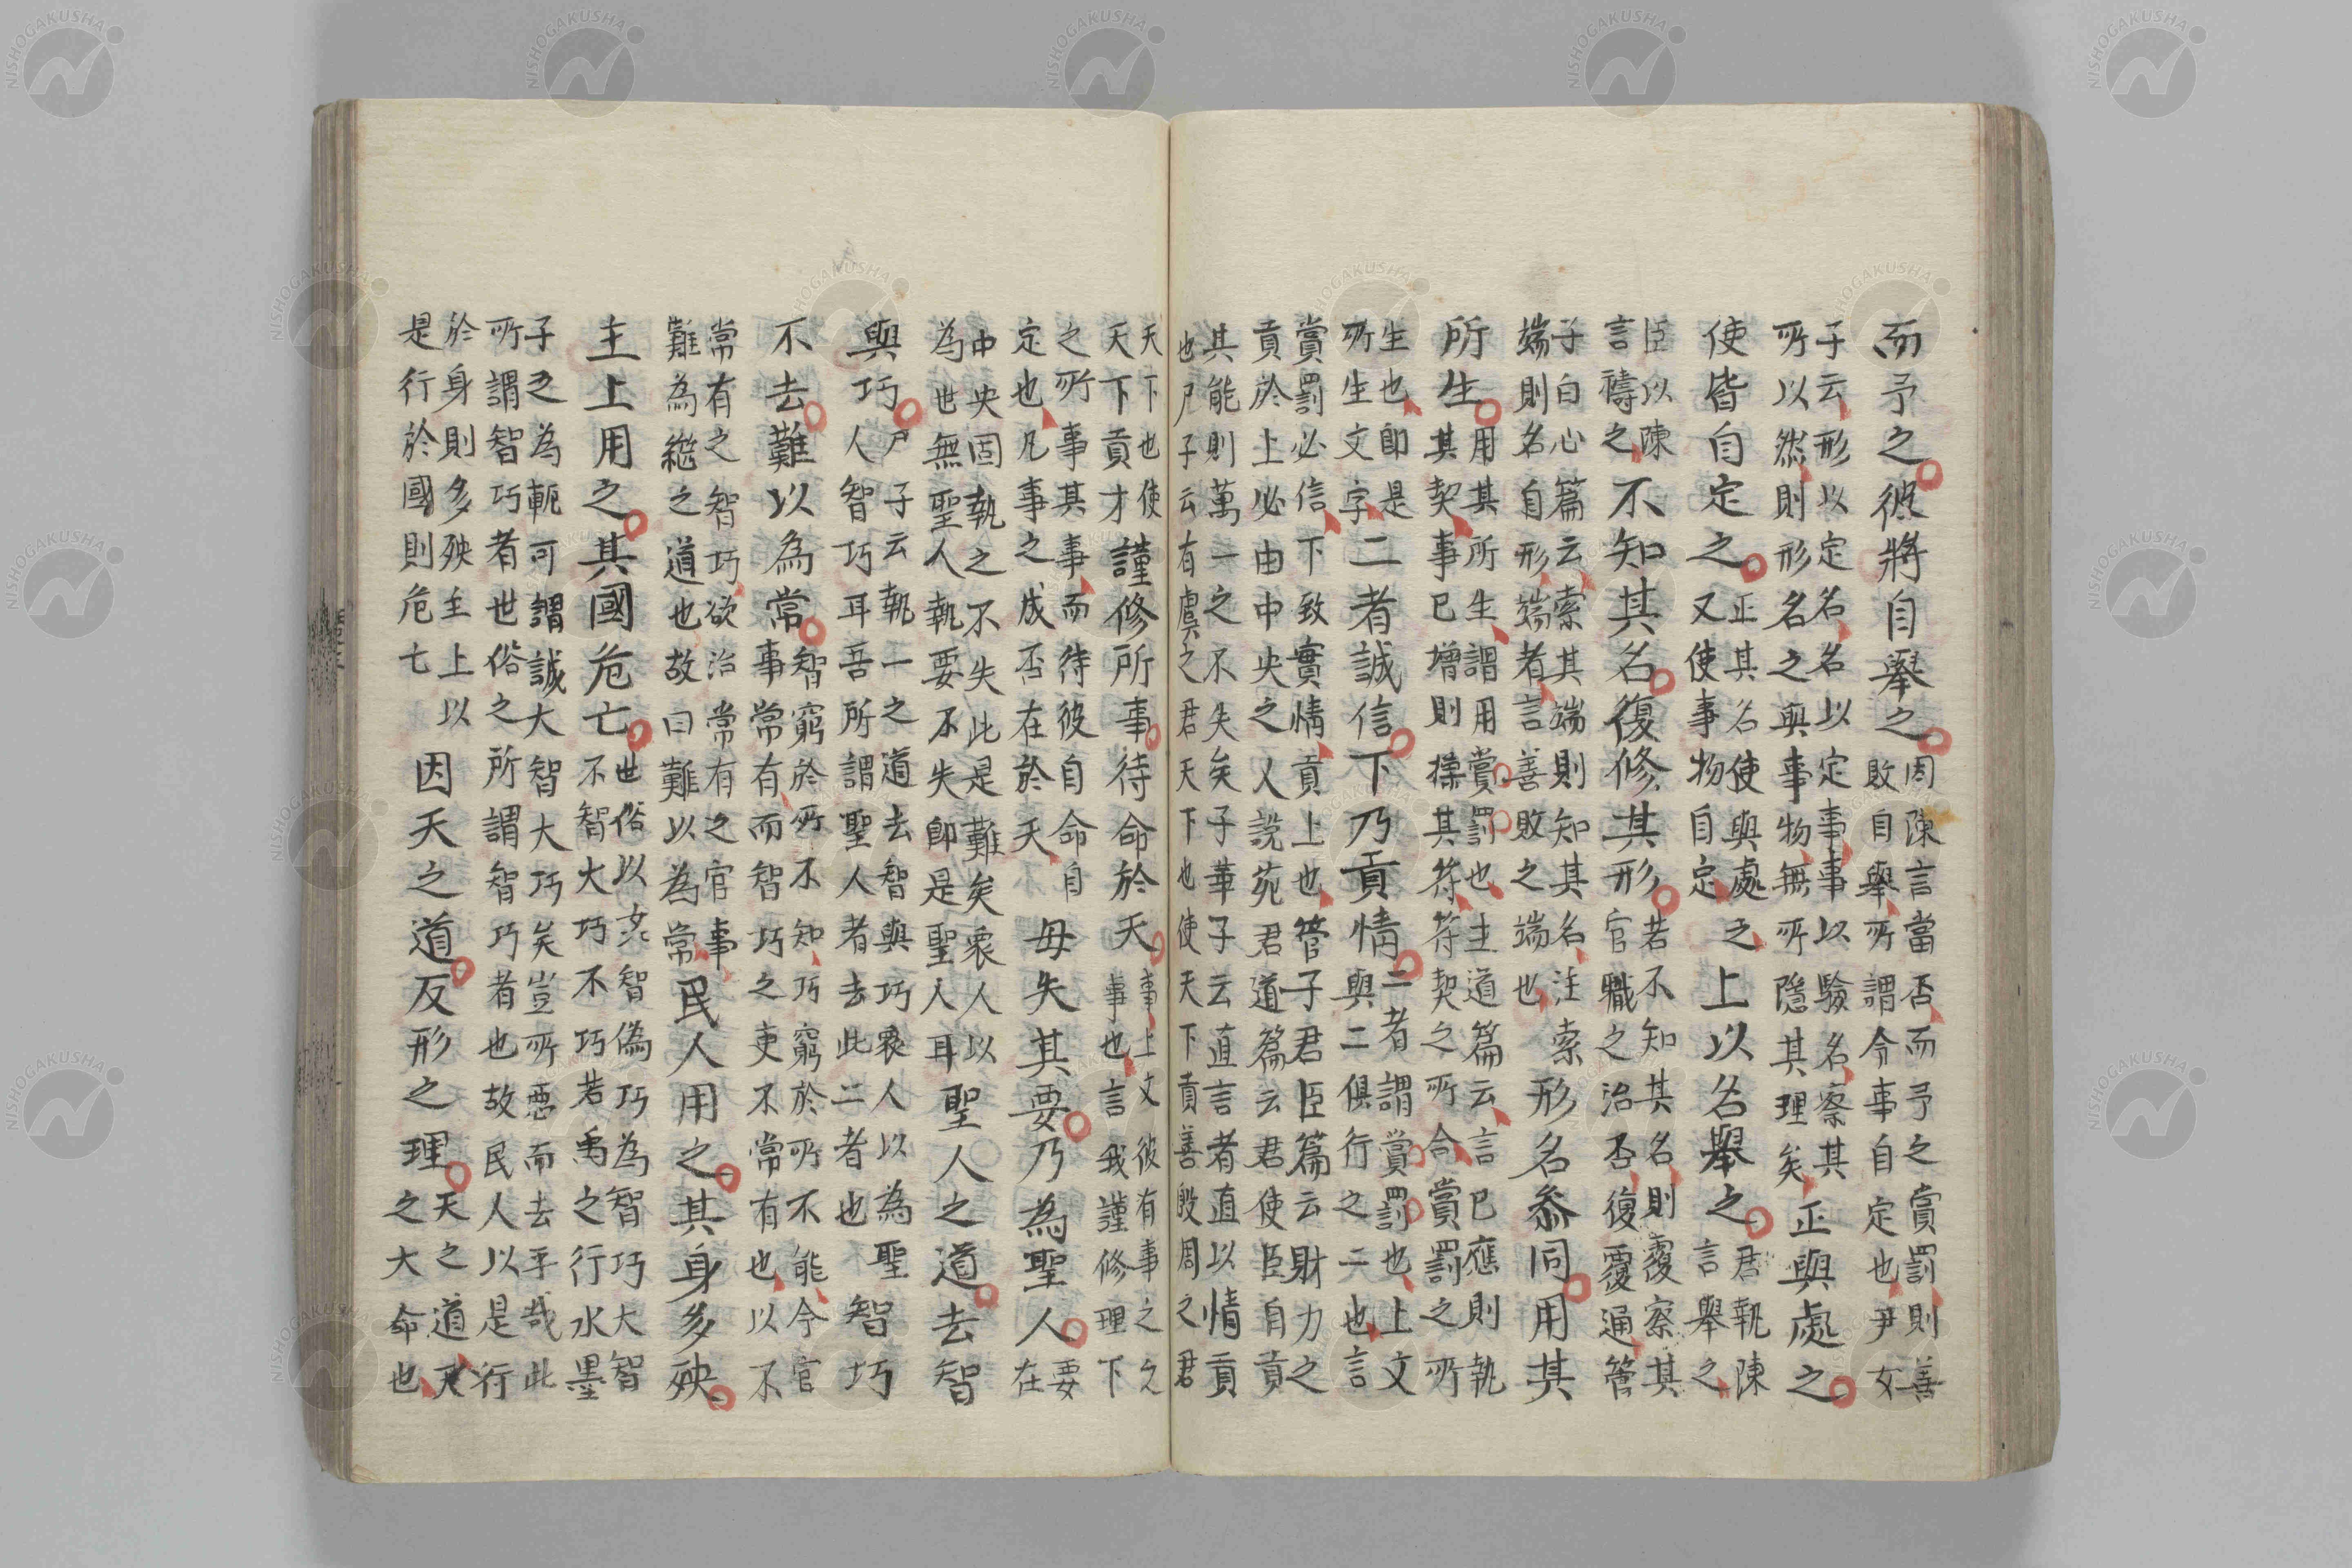 而予之彼將自舉之
因陳言當否而予之賞罰則善
敗自舉所謂令事自定也尹文
子云形以定名名以定事事以驗名察其
所以然則形名之與事物無所隱其理矣
正與處之
使皆自定之
正其名使與處之
又使事物自定
上以名舉之
君執陳
言舉之
臣以陳
言禱之
不知其名復修其形
若不知其名則覆察其
官職之治否復覆通管
子白心篇云索其端則知其名注索
端則名自形端者言善敗之端也
形名参同用其
所生
用其所生謂用賞罰也主道篇云言已應則執
其契事已增則操其符符契之所合賞罰之所
生也即是
所生文字
二者誠信下乃貢情
二者謂賞罰也上文
與二俱行之二也言
賞罰必信下致實情貢上也管子君臣篇云財力之
貢於上必由中央之人説苑君道篇云君使臣自貢
其能則萬一之不失矣子華子云直言者直以情貢
也尸子云有虞之君天下也使天下貢善殷周之君
天下也使
天下貢才
謹修所事待命於天
事上文彼有事之
事也言我謹修理下
之所事其事而待彼自命自
定也凡事之成否在於天
毋失其要乃為聖人
要
在
中央固執之不失此是難矣衆人以
為世無聖人執要不失即是聖人耳
聖人之道去智
與巧
尸子云執一之道去智與巧衆人以為聖
人智巧耳吾所謂聖人者去此二者也
智巧
不去難以為常
智窮於所不知巧窮於所不能今官
事常有而智巧之吏不常有也以不
常有之智巧欲治常有之官事
難為繼之道也故曰難以為常
民人用之其身多殃
主上用之其國危亡
世俗以智偽巧為智巧大智
不智大巧不巧若禹之行水墨
子之為軏可謂誠大智大巧矣豈所惡而去乎哉此
所謂智巧者世俗之所謂智巧者也故民人以是行
於身則多殃主上以
是行於國則危亡
因天之道反形之理
天之道天
之大命也
NISHOGAKUSHA